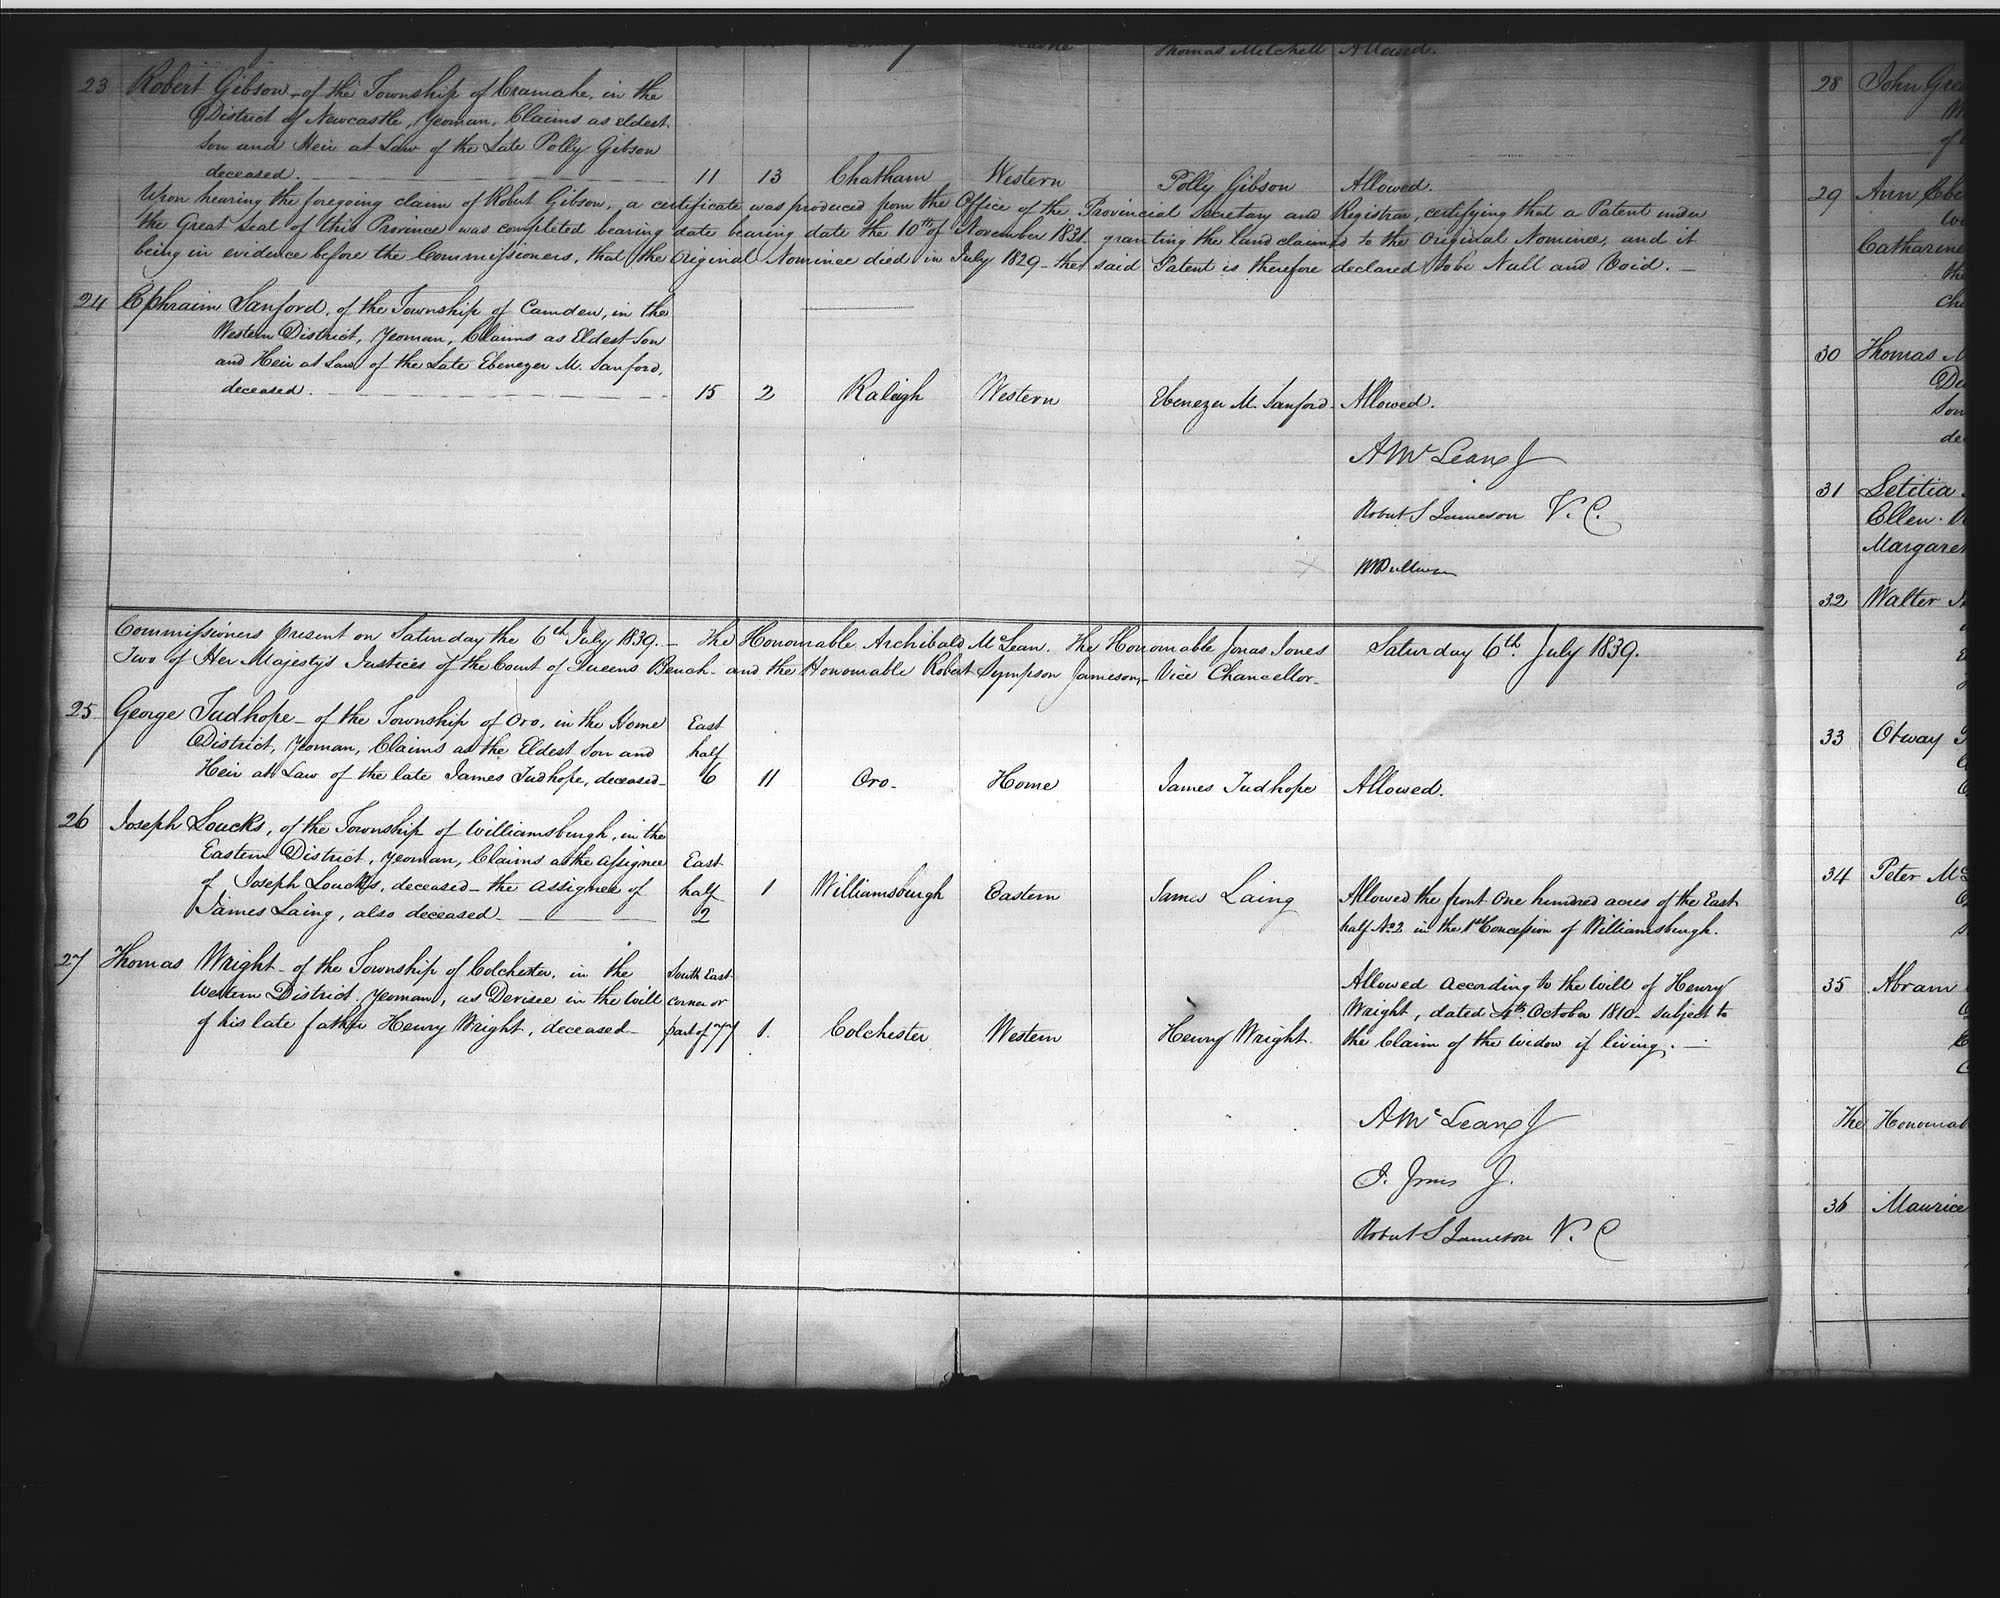 Thomas Mitchell Allowed.
23 Robert Gibson - of the Township of Cramahe, in the
District of Newcastle, Yeoman, Claims as eldest
son and Heir at Law of the Late Polly Gibson
deceased. 11 13 Chatham Western Polly Gibson Allowed.
Upon hearing the foregoing claim of Robert Gibson, a certificate was produced from the Office of the Provincial Secretary and Registrar, certifying that a Patent under
the Great Seal of this Province was completed bearing date bearing date the 10th of November 1831 - granting the Land claimed to the Original Nominee, and it
being in evidence before the Commissioners, that the Original Nominee died in July 1829 - the said Patent is therefore declared to be Null and Void. -
24 Ephraim Sanford, of the Township of Camden, in the
Western District, Yeoman, Claims as Eldest Son
and Heir at Law of the Late Ebenezer M. Sanford,
deceased. 15 2 Raleigh Western Ebenezer M. Sanford - Allowed.
A McLean J
Robert S Jameson V. C.
Commissioners present on Saturday the 6th July 1839. - The Honourable Archibald McLean. The Honourable Jonas Jones Saturday 6th July 1839.
Two of Her Majesty's Justices of the Court of Queens Bench - and the Honourable Robert Sympson Jameson, - Vice Chancellor -
25 George Tudhope - of the Township of Oro, in the Home East
District, Yeoman, Claims as the Eldest Son and half
Heir at Law of the late James Tudhope, deceased - 6 11 Oro - Home James Tudhope Allowed.
26 Joseph Loucks, of the Township of Williamsburgh, in the
Eastern District, Yeoman, Claims as the Assignee East
of Joseph Loucks, deceased - the Assignee of half 1 Williamsburgh Eastern James Laing Allowed the front One hundred acres of the East
James Laing, also deceased - 2 half No 2 in the 1st Concession of Williamsburgh.
27 Thomas Wright - of the Township of Colchester, in the South East
Western District. Yeoman, as Devisee in the Will corner or Allowed According to the Will of Henry
of his late father Henry Wright, deceased - part of 77 1. Colchester Western Henry Wright. Wright, dated 4th October 1810 - subject to
the Claim of the widow if living. -
A McLean J
J. Jones J.
Robert S Jameson V. C
28 John
29 Ann
Catharine
30 Thomas
31 Letitia
Ellen
Margaret
32 Walter
33 Otway
34 Peter
35 Abram
The
36 Maurice